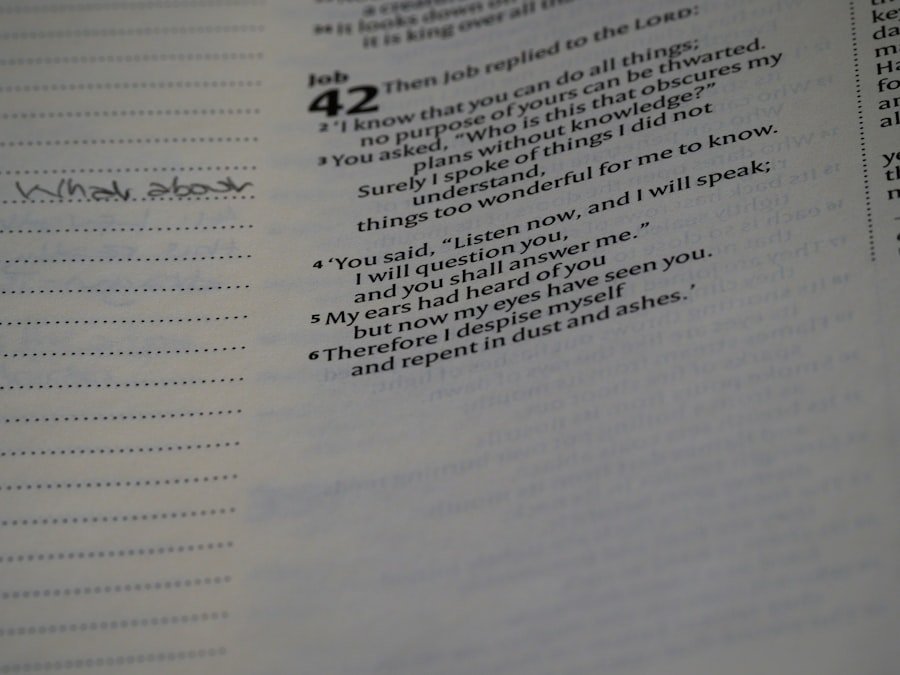 What about
a
34 It looks down on
it is king over all
Job
42 Then Job replied to the LORD:
2 ‘I know that you can do all things;
no purpose of yours can be thwarted.
3 You asked, “Who is this that obscures my
plans without knowledge?”
Surely I spoke of things I did not
understand,
things too wonderful for me to know.
4 ‘You said, “Listen now, and I will speak;
I will question you,
and you shall answer me.”
5 My ears had heard of you
but now my eyes have seen you.
6 Therefore I despise myself
and repent in dust and ashes.’